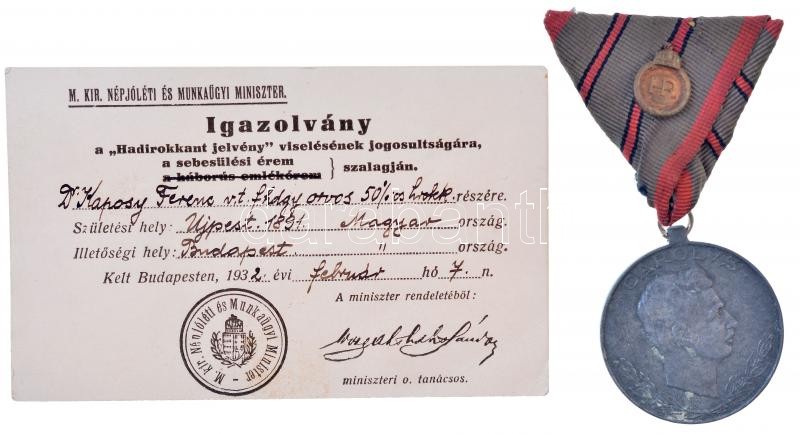 M. KIR. NÉPJÓLÉTI ÉS MUNKAÜGYI MINISZTER.
Igazolvány
a „Hadirokkant jelvény” viselésének jogosultságára,
a sebesülési érem
a háborús emlékérem } szalagján.
Dr Kaposy Ferenc v.t. főorvos 50%os hrokk. részére.
Születési hely: Ujpest. 1891. Magyar ország.
Illetőségi hely: Budapest. " ország.
Kelt Budapesten, 1932. évi február hó 7. n.
A miniszter rendeletéből:
M. Kir. Népjóléti és Munkaügyi Miniszter
miniszteri o. tanácsos.
HR
CAROLVS
darabanth